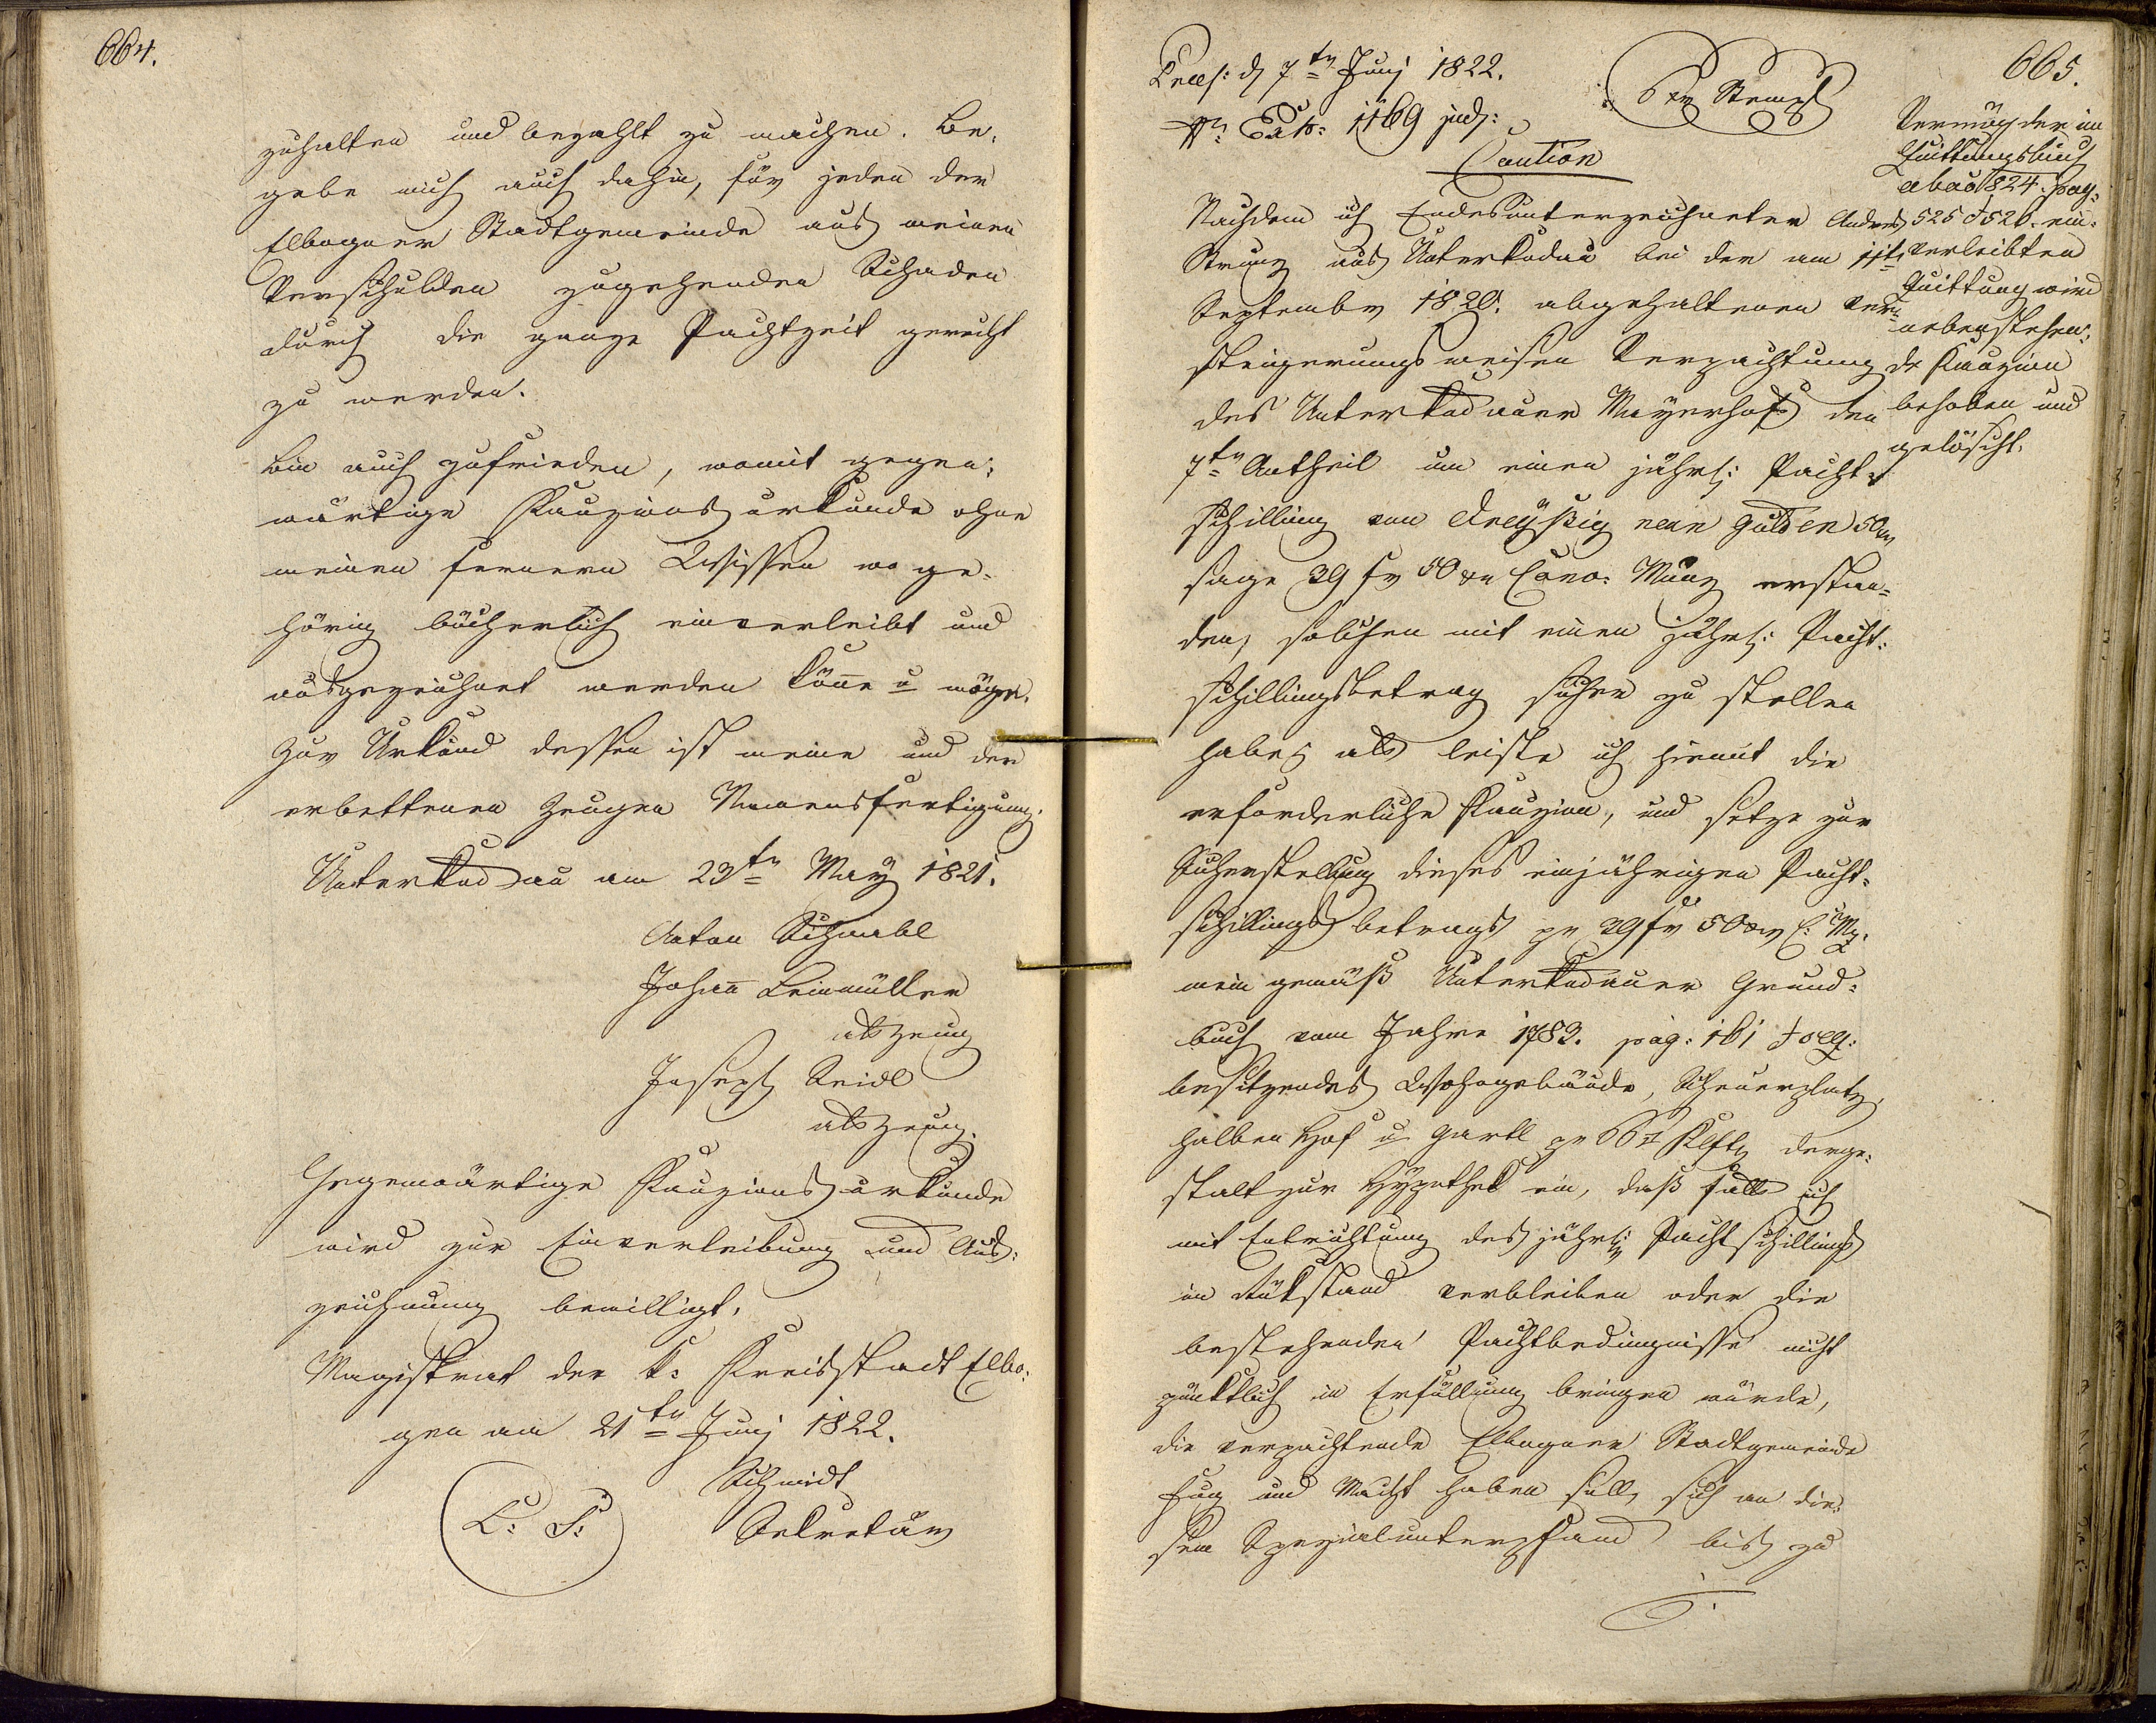 664.
zuhalten und bezahlt zu machen. Be-
gebe mich auch dahin, für jeden der
Elbogner Stadtgemeinde aus meinen
Verschulden zugehenden Schaden
durch die ganze Pachtzeit gerecht
zu werden.
Bin auch zufrieden, womit gegen-
wärtige Kauzionsurkunde ohne
meinen fernern Wissen wo ge-
hörig bücherlich einverleibt und
ausgezeichnet werden könne u möge.
Zur Urkund dessen ist meine und der
erbettenen Zeugen Namensfertigung.
Unterkodau am 23tn May 1821.
Anton Schnabl
Johann Leinmüller
als Zeug
Joseph Seidl
als Zeug.
Gegenwärtige Kauzionsurkunde
wird zur Einverleibung und Aus-
zeichnung bewilligt.
Magistrat der k: Kreisstadt Elbo-
gen am 21tn Juny 1822.
Schmidt
L: S:
Sekretär
665.
Præs: d 7tn Juny 1822.
Nr: Exh: 1169 jud:
6 xr Stempl
Caution
Nachdem ich Endesunterzeichneter Andres
Strunz aus Unterkodau bei der am 11t
September 1820. abgehaltenen ver-
steigerungsweisen Verpachtung
des Unterkodauer Mayerhofs den
7tn Antheil um einen jährl: Pacht-
schilling von dreyßig neun Gulden 50 xr
sage 39 fr 50 xr Conv: Münz erstan-
den, solchen mit einen jährl: Pacht-
schillingsbetrag sicher zu stellen
habe; als leiste ich hiemit die
erforderliche Kauzion, und setze zur
Sicherstellung dieses einjährigen Pacht-
schillingsbetrags pr 39 fr 50 xr C: Mz.
mein gemäß Unterkodauer Grund-
buch vom Jahre 1783. pag: 161 & seq:
besitzendes Wohngebäude, Scheuerplatz,
halben Hof u Gartl pr 66 Klftr derge-
stalt zur Hypothek ein, daß falls ich
mit Entrichtung des jährl: Pachtschillings
in Rükstand verbleiben oder die
bestehenden Pachtbedingnisse nicht
pünktlich in Erfüllung bringen würde,
die verpachtende Elbogner Stadtgemeinde
Fug und Macht haben soll, sich an die-
sem Spezialunterpfand bis zu
Vermög der im
Quittungsbuch
ab ao 1824. pag.
525 & 526. ein-
verleibten
Quittung wird
nebenstehen-
de Kauzion
behoben und
gelöscht.